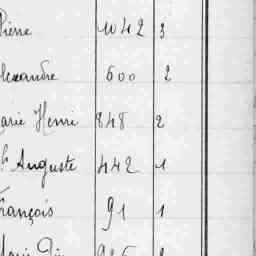 Pierre 1042 3
lexandre 600 2
arie Henri 848 2
h Auguste 442 1
rançois 91 1